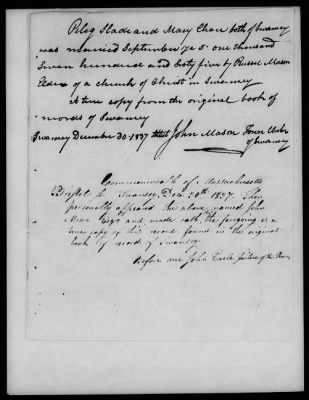 Peleg Slade and Mary Chace both of Swansey
was married September ye 5 one thousand
Seven hundred and Sixty five by Russel Mason
Elder of a church of Christ in Swansey
A true copy from the original book of
records of Swansey
Swansey December 30. 1837 Attest John Mason Town Clerk
of Swansey
Commonwealth of Massachusetts
Bristol ss Swansey Dec. 30th 1837. Then
personally appeared the above named John
Mason and made oath the foregoing is a
true copy of the record found in the original
book of records of Swansey.
Before me John Justice of the Peace